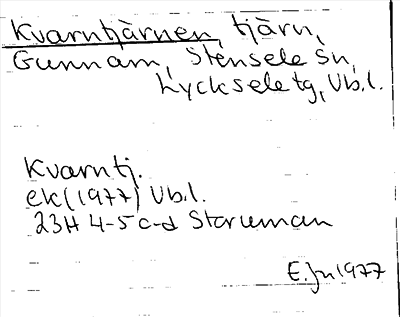 Kvarntjärnen, tjärn,
Gunnarn, Stensele sn,
Lycksele tg, Vb.l.
Kvarntj.
ek (1977) Vb.l.
23H 4-5 c-d Storuman
E.Jn 1977